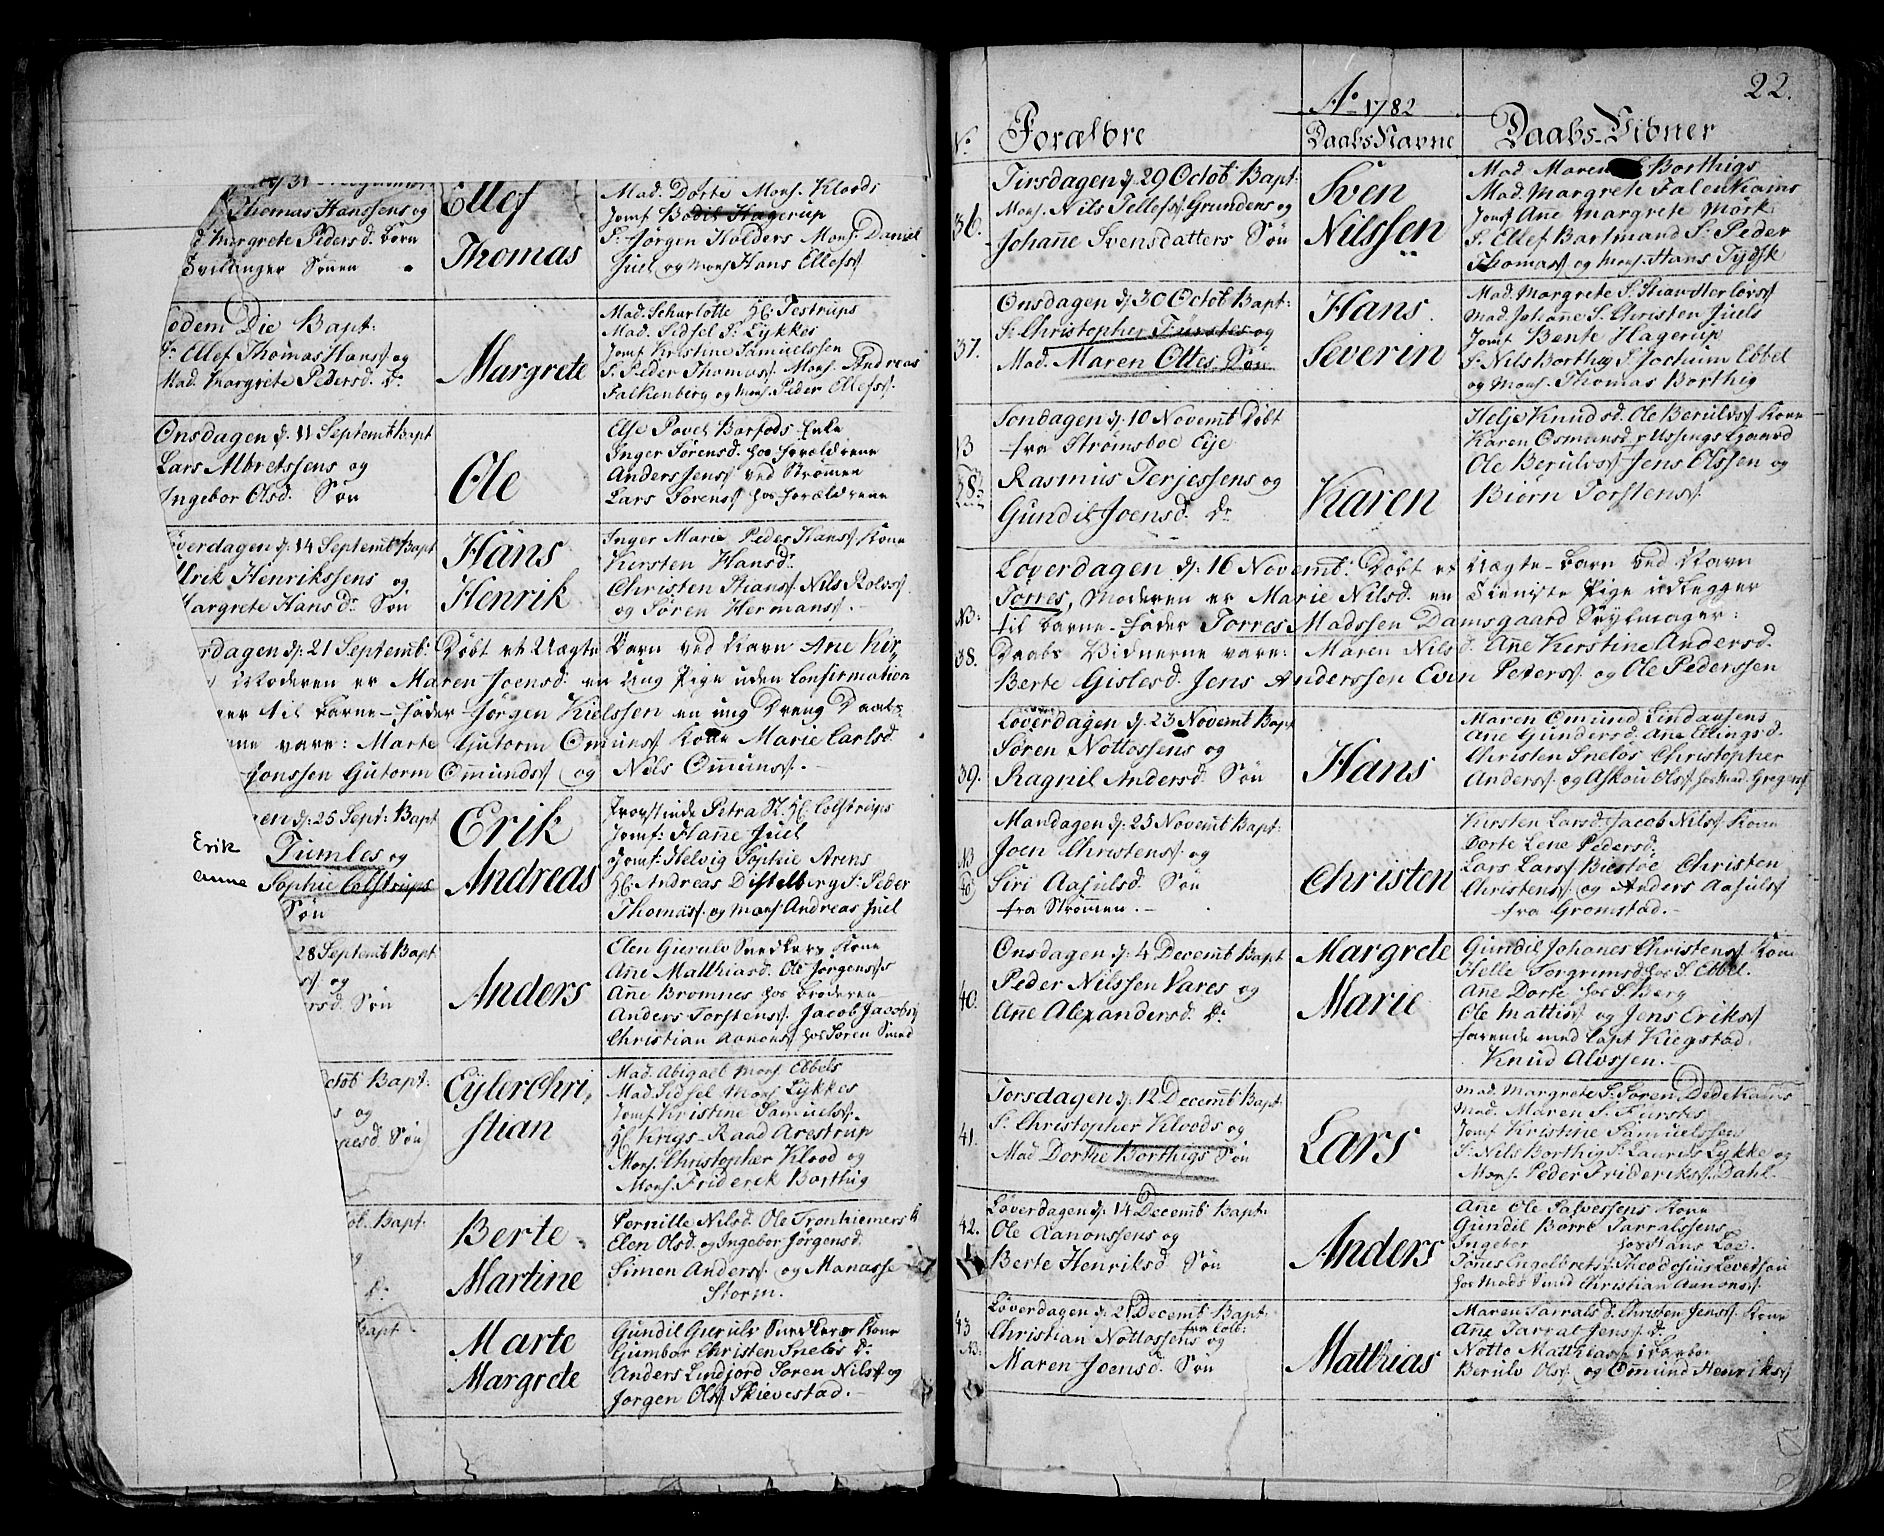 Thomas Hanssens og
Margrete Pedersd. børn
Tvillinger Sønner
Ellef
Thomas
Mad. Dorte Mons. Kloeds
Jomf Bodil Hagerup
S. Jørgen Holders Mons. Daniel
Juel og Mons Hans Ellefs
Eodem Die Bapt:
Sr Ellef Thomas Hanss og
Mad. Margrete Pedersd. Dr
Margrete
Mad. Scharlotte H: Testrups
Mad. Sidsel S. Lykkes
Jomf Kristine Samuelssen
S. Peder Thomass. Mons. Andreas
Falkenberg og Mons. Peder Ellefss.
Onsdagen d. 11 Septemb Bapt
Lars Albretssens og
Ingebor Olsd. Søn
Ole
Else Povel Barfods Enke
Inger Sørensd. hos forældrene
Anders Jenss ved Strømmen
Lars Sørenss hos forældrene
Løverdagen d. 14 Septemb Bapt
Ulrik Henrikssens og
Margrete Hans Dr Søn
Hans
Henrik
Inger Marie Peder Hanss Kone
Kirsten Hansdr
Christen Stianss Nils Rolvss
og Søren Hermanss.
rdagen d: 21 Septemb: Døbt et Uægte Barn ved Navn Ane Kir
Moderen er Maren Joensd. en Ung Pige uden Confirmation
til Barne-Fader Jørgen Kielssen en ung Dreng Daabs
vare: Marte Gutorm Omunss Kone Marie Carlsd.
Jonssen Gutorm Omundss og Nils Omunss.
d. 25 Sept: Bapt
Erik Tumles og
Anne Sophie Colstrups
Søn
Erik
Andreas
Provstinde Petra St. H: Colstrups
Jomf: Hanne Juel
Jomf: Helvig Sophie Arens
H: Andreas Distelberg S: Peder
Thomass. og Mons. Andreas Juel
28 Septemb Bapt
ss og
ersd. Søn
Anders
Elen Gierulv Snedkers Kone
Ane Matthiasd. Ole Jørgenss
Ane Bromnes hos Broderen
Anders Torstenss. Jacob Jacobs
Christian Aanonss hos Søren Smed
Octob Bapt:
s og
Søn
Eyler Chri,
stian
Mad. Abigael Mons. Ebbels
Mad. Sidsel Mons Lykkes
Jomf Kristine Samuelss.
H: Krigs-Raad Arestrup
Mons. Christopher Klood og
Mons. Friderik Borthig
ob. Bapt:
og
Dr
Berte
Martine
Pernille Nilsd. Ole Tronhiemers K
Elen Olsd. og Ingebor Jørgensd.
Simen Anderss og Manasse
Storm.
Bapt
Marte
Margrete
Gundil Gierulv Snedkers Kone
Gumbor Christen Sneløs Dr
Anders Lindjord Søren Nilss og
Jørgen Olss Skievestad.
22.
Ao 1782
No Forældre Daabs Navne Daabs-Vidner
36.
Tirsdagen d. 29 Octob Bapt:
Mons. Nils Tellefss Grundens og
Johanne Svensdatters Søn
Sven
Nilssen
Mad Maren Borthigs
Mad. Margrete Falenkams
Jomf Ane Margrete Mørk
S. Ellef Bartmand S. Peder
Thomass og Mons. Hans Tydsk
37.
Onsdagen d. 30 Octob Bapt:
S. Christopher Fürstes og
Mad. Maren Ottes Søn
Hans
Severin
Mad. Margrete S. Stian Herløvs
Mad. Johanne S. Christen Juels
Jomf Bente Hagerup
S. Nils Borthig S Jochum Ebbel
og Mons. Thomas Borthig
Søndagen d. 10 Novemb Døbt
fra Strømsboe Eje
Rasmus Terjessens og
Gundil Joensd. Dr
Karen
Helje Knudsd. Ole Berulvss Kone
Karen Osmunsd.
Ole Berulvss Jens Olssen og
Biørn Torstenss.
N3:
38.
Løverdagen d. 16 Novemb: Døbt et Uægte-Barn ved Navn
Torres, Moderen er Marie Nilsd. en Tieniste Pige udlegger
til Barne-Fader Torres Madssen Damsgaard Seylmager:
Daabs Vidnerne vare: Maren Nilsd. Ane Kirstine Andersd.
Berte Gislesd. Jens Anderssen Even Peterss. og Ole Pederssen
39.
Løverdagen d. 23 Novemb Bapt
Søren Nottossens og
Ragnil Andersd. Søn
Hans
Maren Omund Lindausens
Ane Gundersd. Ane Ellingsd.
Christen Sneløs Christopher
Anderss. og Askou Olss hos Mad. Gregerss
Mandagen d. 25 Novemb Bapt:
Joen Christenss og
Siri Aasulsd. Søn
fra Strømmen.
Christen
Kirsten Larsd. Jacob Nilss Kone
Dorte Lene Pedersd.
Lars Larss Biestøe Christen
Christenss. og Anders Aasulss
fra Gromstad.
40.
Onsdagen d. 4 Decemb Bapt
Peder Nilssen Vares og
Ane Alexandersd. Dr
Margrete
Marie
Gundil Johanes Christenss Kone
Helle Torgrimsd. hos S. Ebbel.
Ane Dorte hos S. Berg
Ole Mattiss og Jens Erikss
farende med Capt Kiegstad.
Knud Alvssen.
41.
Torsdagen d. 12 Decemb Bapt
S. Christopher Kloods og
Mad Dorthe Borthigs Søn
Lars
Mad. Margrete S. Søren Dedekams
Mad. Maren S. Fürstes
Jomf Kristine Samuelssen
S. Nils Borthig S. Laurits Lykke og
Mons. Peder Friderikss. Dahl.
42.
Løverdagen d. 14 Decemb Bapt:
Ole Aanonssens og
Berte Henriksd Søn
Anders
Ane Ole Salvessens Kone
Gundil Børre Tarralssens
Ingebor hos Hans Loe.
Tønes Engelbretss. Theodosius Levordsen
hos Mads Smed Christian Aanonss
43
Løverdagen d. 21 Decemb Bapt:
Christian Nottossens og
Maren Joensd. Søn
Matthias
Maren Tarralsd. Christen Jenss Kone
Ane Tarral Jenss. Dr.
Notto Matthiass i Barbo
Berulv Olss. og Omund Henrikss